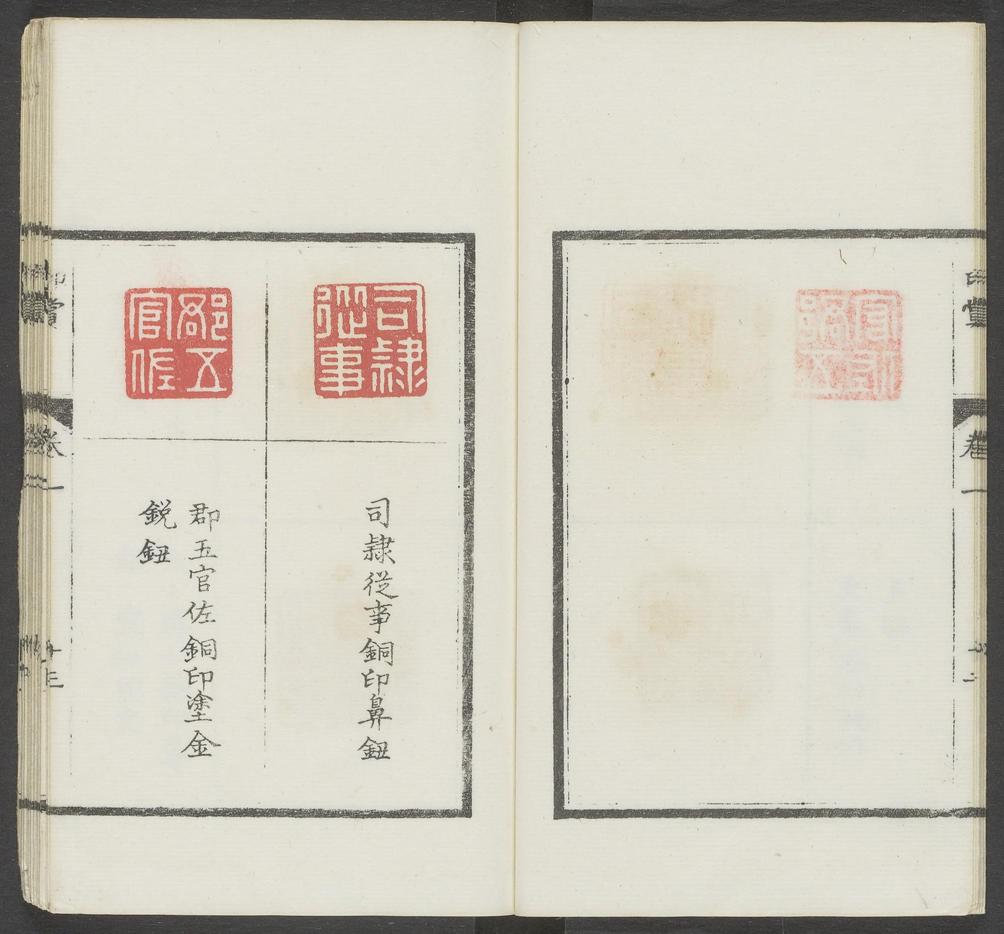 卷一
司隸
從事
司隸從事銅印鼻鈕
郡五
官佐
郡五官佐銅印塗金
鋭鈕
卷一